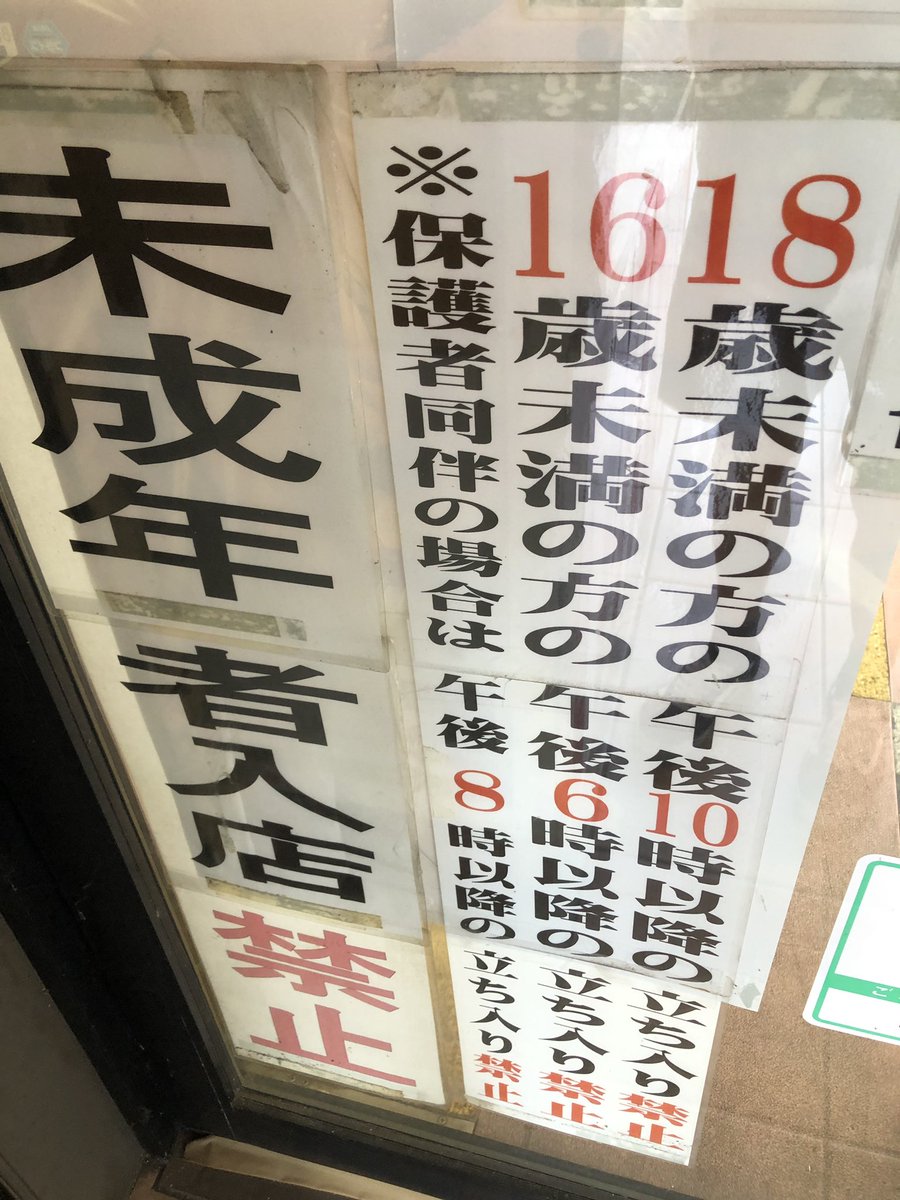 18歳未満の方の午後10時以降の立ち入り禁止
16歳未満の方の午後6時以降の立ち入り禁止
※保護者同伴の場合は午後8時以降の立ち入り禁止
未成年者入店禁止